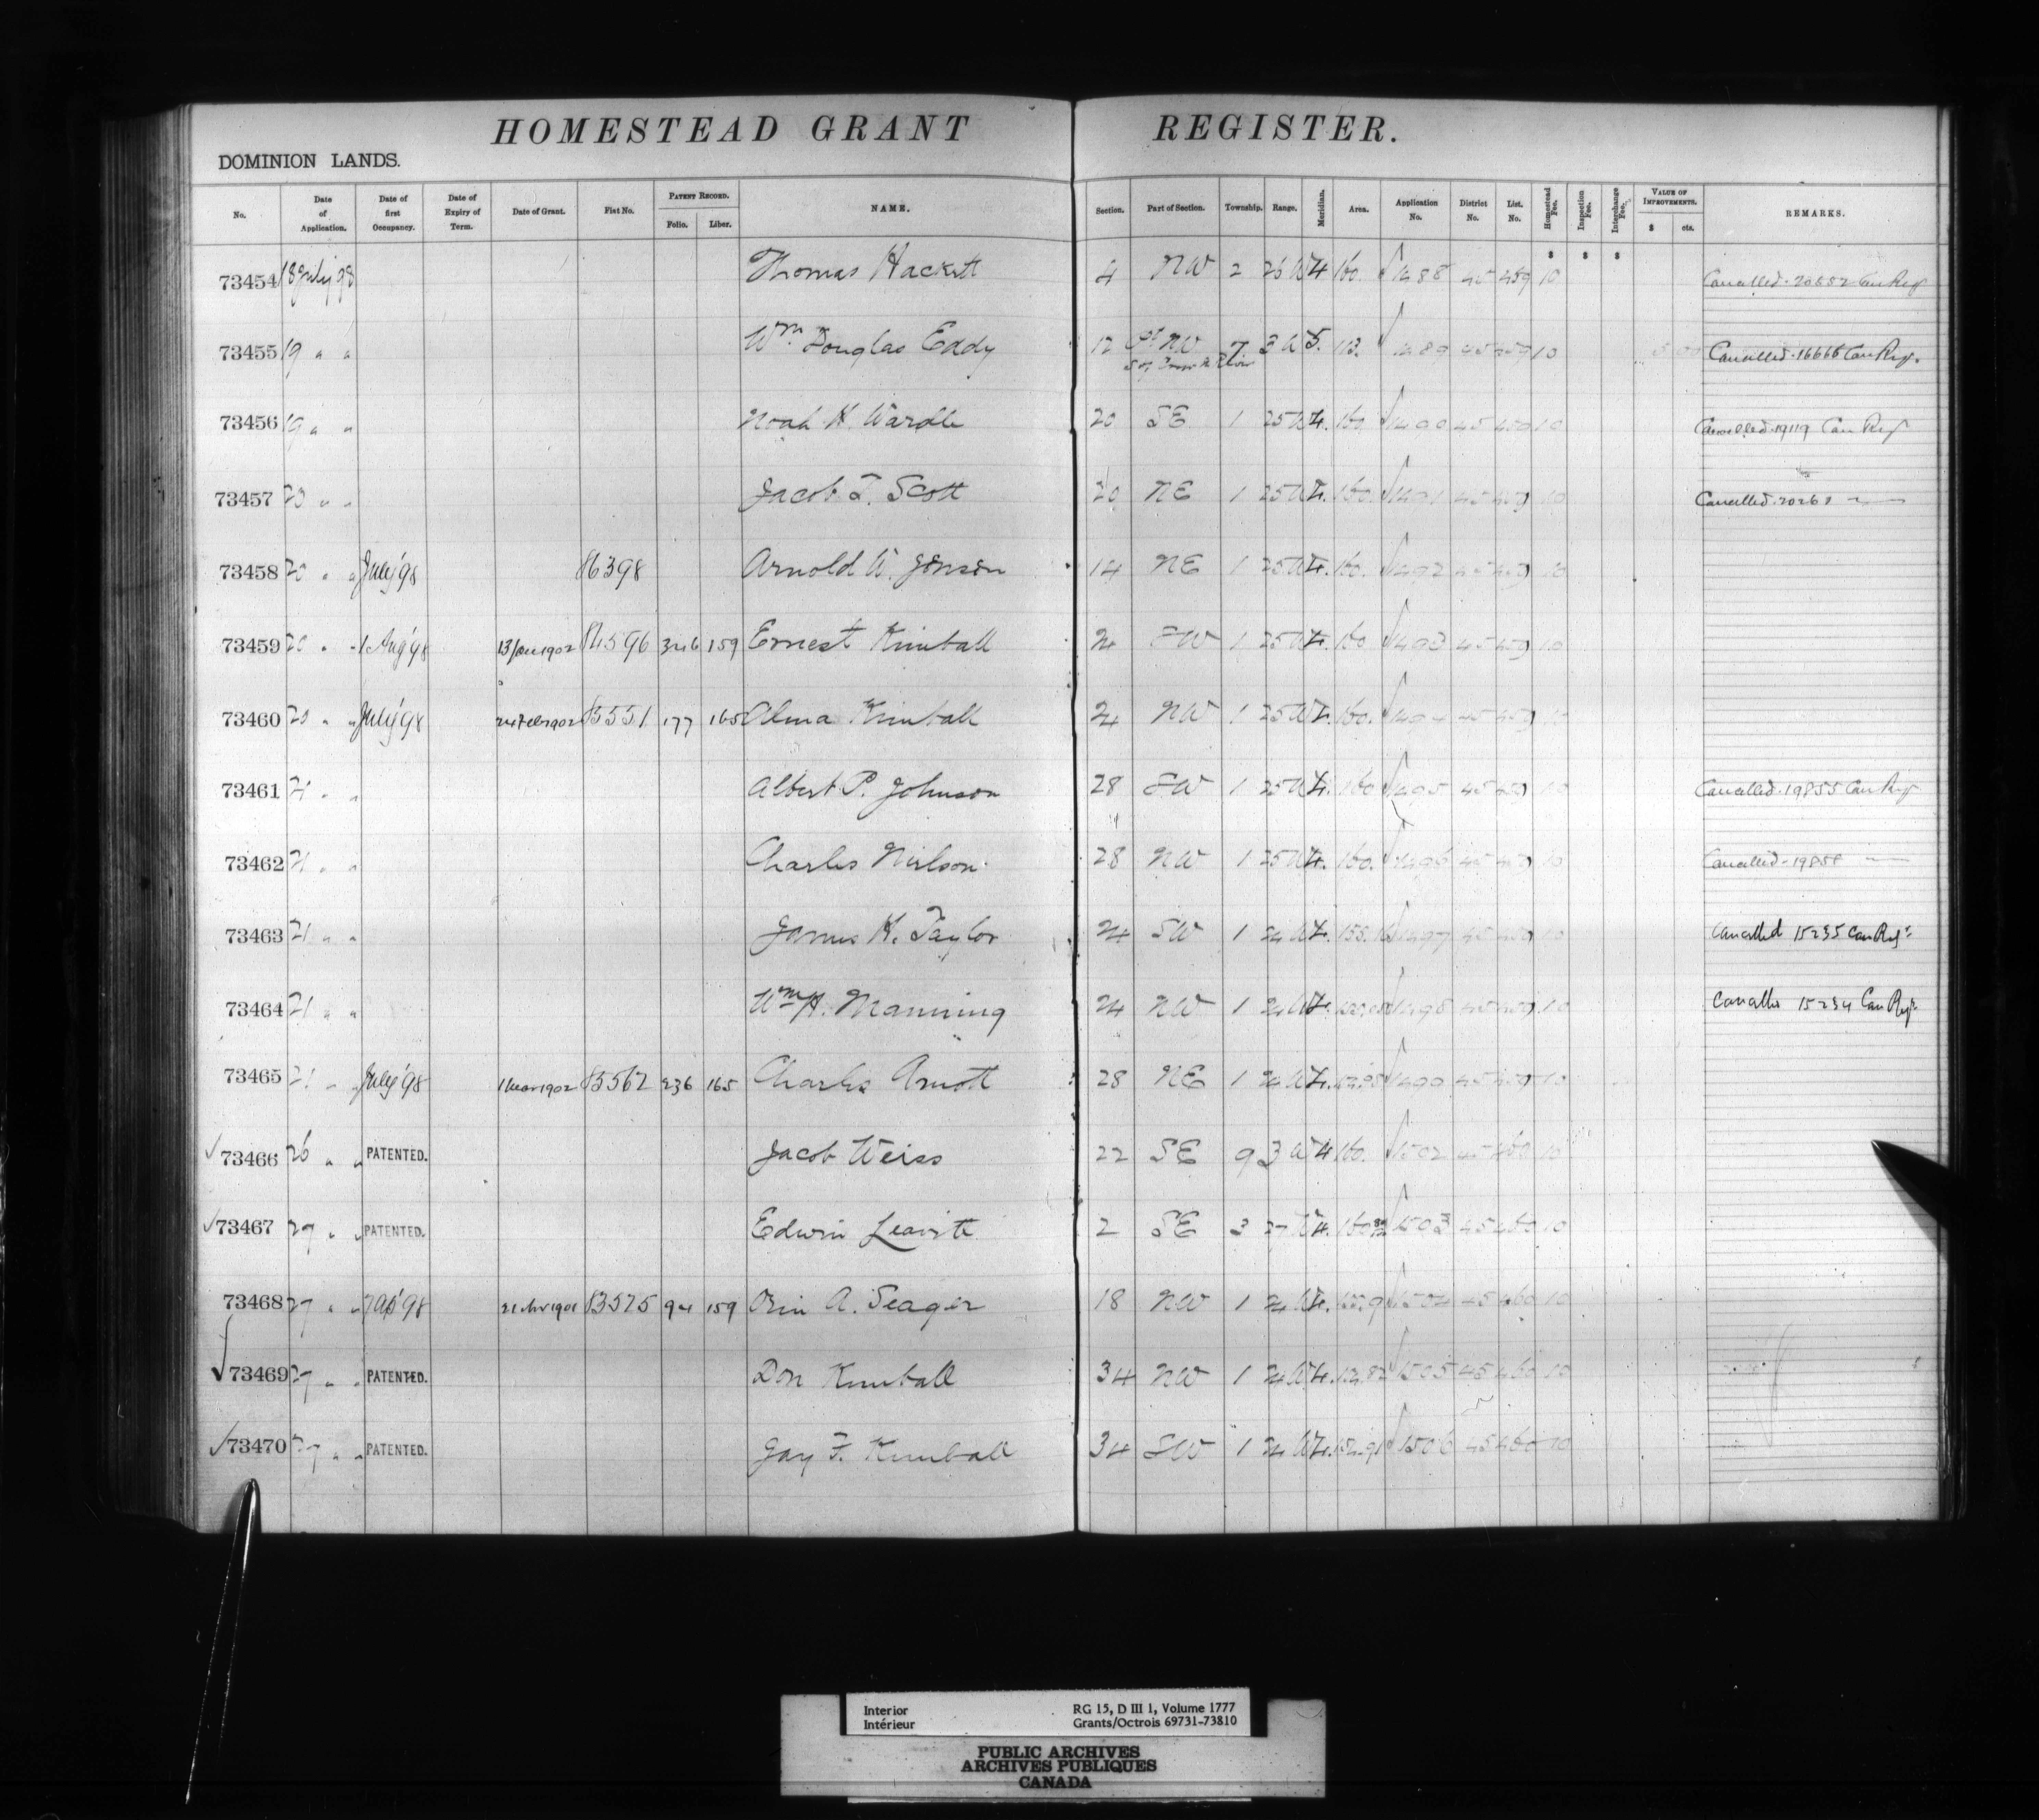 HOMESTEAD GRANT REGISTER.
DOMINION LANDS.
No. Date of Application. Date of first Occupancy. Date of Expiry of Term. Date of Grant. Fiat No. PATENT RECORD. Folio. Liber. NAME. Section. Part of Section. Township. Range. Meridian. Area. Application No. District No. List. No. Homestead Fee. Inspection Fee. Interchange Fee. VALUE OF IMPROVEMENTS. $ cts. REMARKS.
$ $ $
73454 18 July 98 Thomas Hackett 4 NW 2 26 W 4 160. 1488 45 459 10 Cancelled. 20852 Can Reg
73455 19 " " Wm. Douglas Eddy 12 Pt NW 7 3 W 5. 113. 1489 45 459 10 Cancelled. 16666 Can Reg.
73456 19 " " Noah H. Wardle 20 SE 1 25 W 4. 160. 1490 45 459 10 Cancelled. 19119 Can Reg
73457 20 " " Jacob T. Scott 20 NE 1 25 W 4. 160. 1491 45 459 10 Cancelled.
73458 20 " " July '98 86398 Arnold W. Jonson 14 NE 1 25 W 4. 160. 1492 45 459 10
73459 20 " " 1 Aug '98 13 Jan 1902 84596 346 159 Ernest Kimball 24 SW 1 25 W 4. 160 1493 45 459 10
73460 20 " " July '98 24 Feb 1902 85551 177 165 Alma Kimball 24 NW 1 25 W 4. 160. 1494 45 459 10
73461 21 " " Albert P. Johnson 28 SW 1 25 W 4. 160 1495 45 459 10 Cancelled. 19855 Can Reg
73462 21 " " Charles Neilson. 28 NW 1 25 W 4. 160. 1496 45 459 10 Cancelled - 19858
73463 21 " " James H. Taylor 24 SW 1 24 W 4. 1497 45 459 10 Cancelled 15235 Can Regr
73464 21 " " Wm H. Manning 24 NW 1 24 W 4. 1498 45 459 10 15234 Can Regr
73465 21 " " July '98 1 Mar 1902 85562 236 165 Charles Arnott 28 NE 1 24 W 4. 1499 45 459 10
73466 26 " " PATENTED. Jacob Weiss 22 SE 9 3 W 4 160. 1502 45 460 10
73467 27 " " PATENTED. Edwin Leavitt 2 SE 3 27 W 4. 1503 45 460 10
73468 27 " " 83575 94 159 Orin A. Seager 18 NW 1 24 W 4. 1504 45 460 10
73469 27 " " PATENTED. Don Kimball 34 NW 1 24 W 4. 1505 45 460 10
73470 27 " " PATENTED. Jay F. Kimball 34 SW 1 24 W 4. 1506 45 460 10
Interior RG 15, D III 1, Volume 1777
Intérieur Grants/Octrois 69731-73810
PUBLIC ARCHIVES
ARCHIVES PUBLIQUES
CANADA